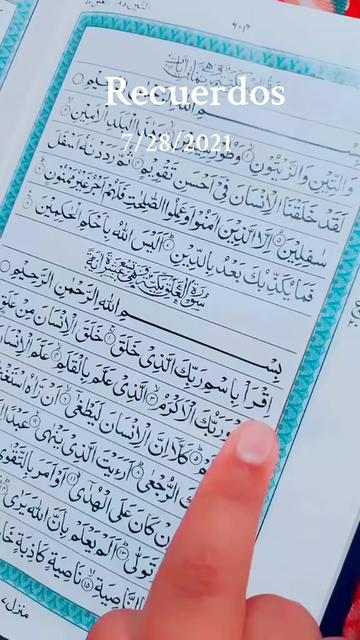 Recuerdos
7/28/2021
اللّٰهِ الرَّحْمٰنِ الرَّحِيْمِ
وَالتِّيْنِ وَالزَّيْتُوْنِ ۝ وَطُوْرِ الْبَلَدِ الْاَمِيْنِ ۝
لَقَدْ خَلَقْنَا الْاِنْسَانَ فِيْۤ اَحْسَنِ تَقْوِيْمٍ ۝ ثُمَّ رَدَدْنٰهُ اَسْفَلَ
سٰفِلِيْنَ ۝ اِلَّا الَّذِيْنَ اٰمَنُوْا وَعَمِلُوا الصّٰلِحٰتِ فَلَهُمْ اَجْرٌ غَيْرُ مَمْنُوْنٍ ۝
فَمَا يُكَذِّبُكَ بَعْدُ بِالدِّيْنِ ۝ اَلَيْسَ اللّٰهُ بِاَحْكَمِ الْحٰكِمِيْنَ ۝
سُوْرَةُ الْعَلَقِ مَكِّيَّةٌ
بِسْمِ اللّٰهِ الرَّحْمٰنِ الرَّحِيْمِ
اِقْرَاْ بِاسْمِ رَبِّكَ الَّذِيْ خَلَقَ ۝ خَلَقَ الْاِنْسَانَ مِنْ عَلَقٍ
وَرَبُّكَ الْاَكْرَمُ ۝ الَّذِيْ عَلَّمَ بِالْقَلَمِ ۝ عَلَّمَ الْاِنْسَانَ
كَلَّاۤ اِنَّ الْاِنْسَانَ لَيَطْغٰۤى ۝ اَنْ رَّاٰهُ
الرُّجْعٰى ۝ اَرَءَيْتَ الَّذِيْ يَنْهٰى ۝ عَبْدًا
اِنْ كَانَ عَلَى الْهُدٰۤى ۝ اَوْ اَمَرَ بِالتَّقْوٰى
تَوَلّٰى ۝ اَلَمْ يَعْلَمْ بِاَنَّ اللّٰهَ يَرٰى
نَاصِيَةٍ كَاذِبَةٍ
منزل ٧